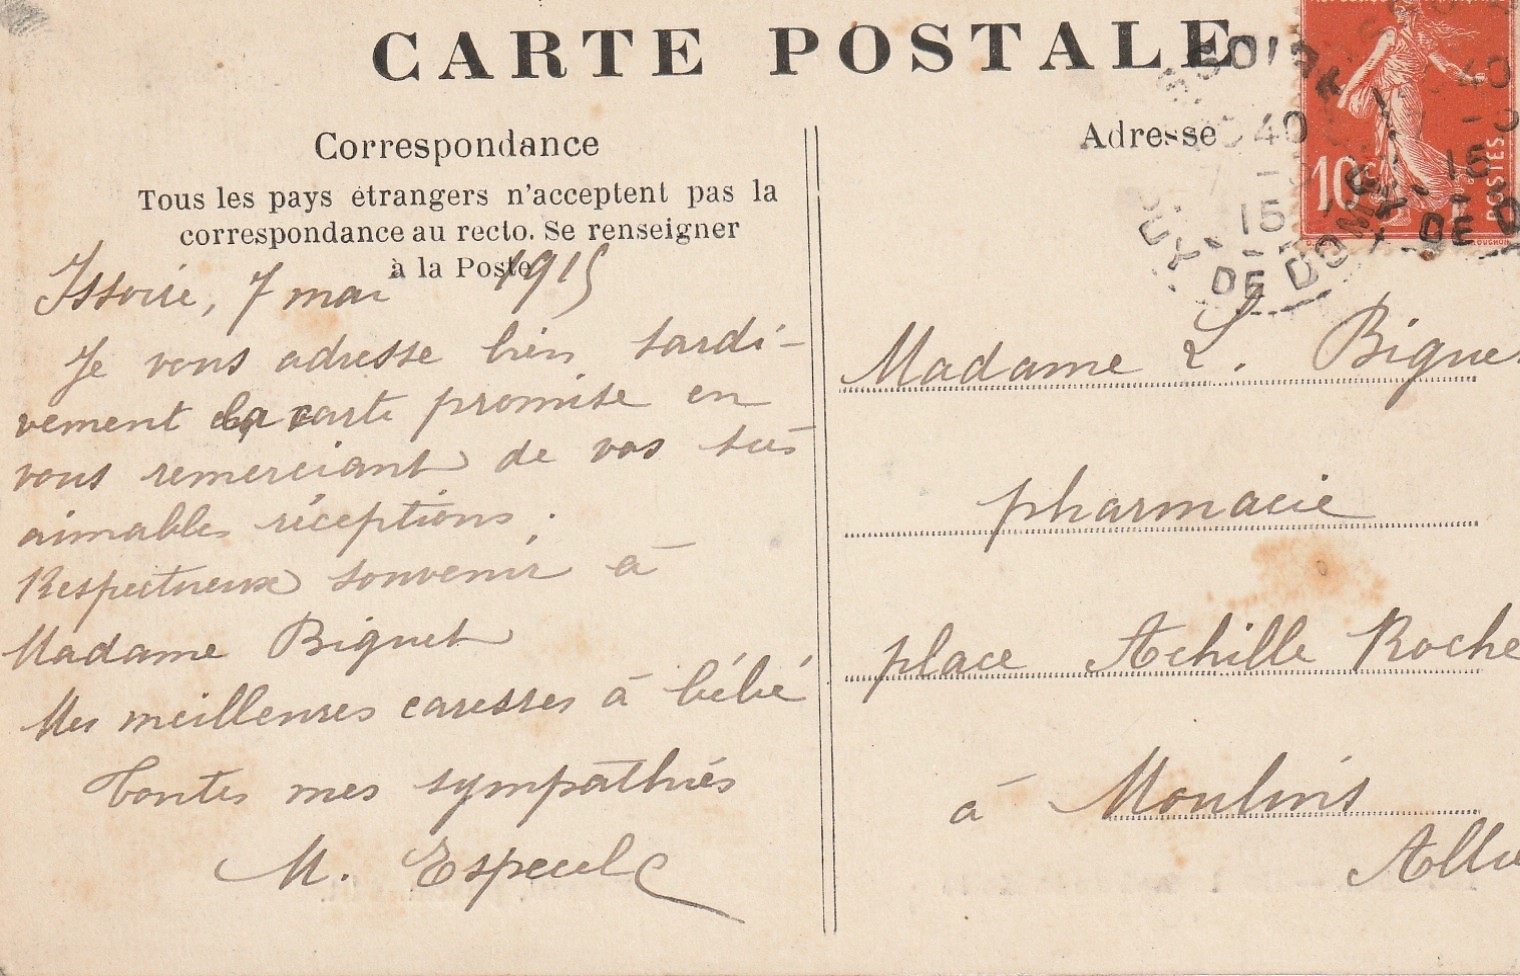 CARTE POSTALE
Correspondance
Tous les pays étrangers n'acceptent pas la
correspondance au recto. Se renseigner
à la Poste
Adresse
10c
POSTES
ISSOIRE
40
7 - 5
15
PUY-DE-DOME
Issoire, 7 mai 1915
Je vous adresse bien tardi-
vement la carte promise en
vous remerciant de vos très
aimables réceptions.
Respectueux souvenir à
Madame Biguet
Mes meilleures caresses à bébé
Toutes mes sympathies
M.
Madame L. Bigue
pharmacie
place Achille Roche
à Moulins
Alli